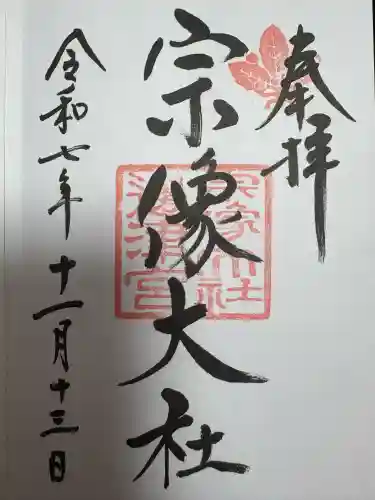 奉拝
宗像大社
令和七年十一月十三日
宗像大社
邊津宮